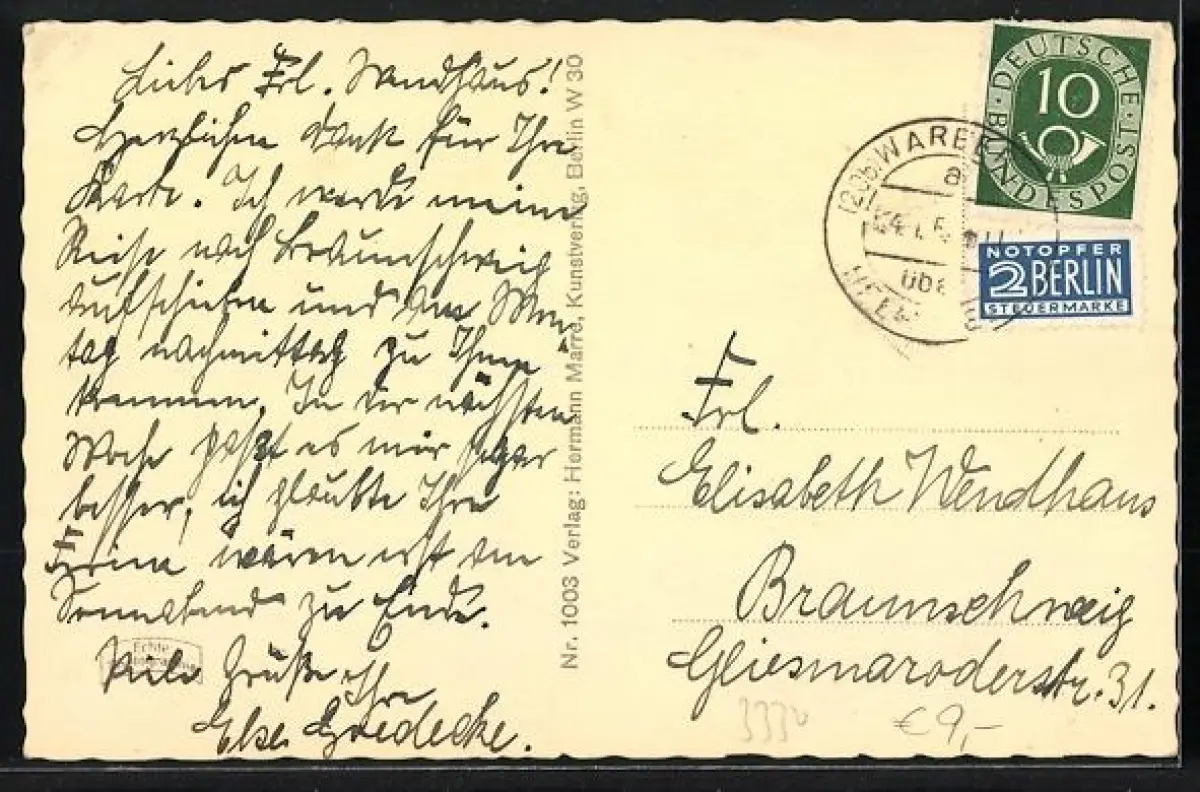 Liebes Frl. Wendhaus!
Herzlichen Dank für Ihre
Karte. Ich werde meine
Reise nach Braunschweig
aufschieben und am Mon
tag nachmittag zu Ihnen
kommen. In der nächsten
Woche paßt es mir sogar
besser, ich glaubte Ihre
Ferien wären erst am
Sonnabend zu Ende.
Viele Grüße Ihre
Else Goedecke.
Echte
Nr. 1003 Verlag: Hermann Marré, Kunstverlag, Berlin W 30
DEUTSCHE BUNDESPOST
10
NOTOPFER
2 BERLIN
STEUERMARKE
(20b) 
a
über
Frl.
Elisabeth Wendhaus
Braunschweig
Gliesmaroderstr. 31.
3330
€ 9,-